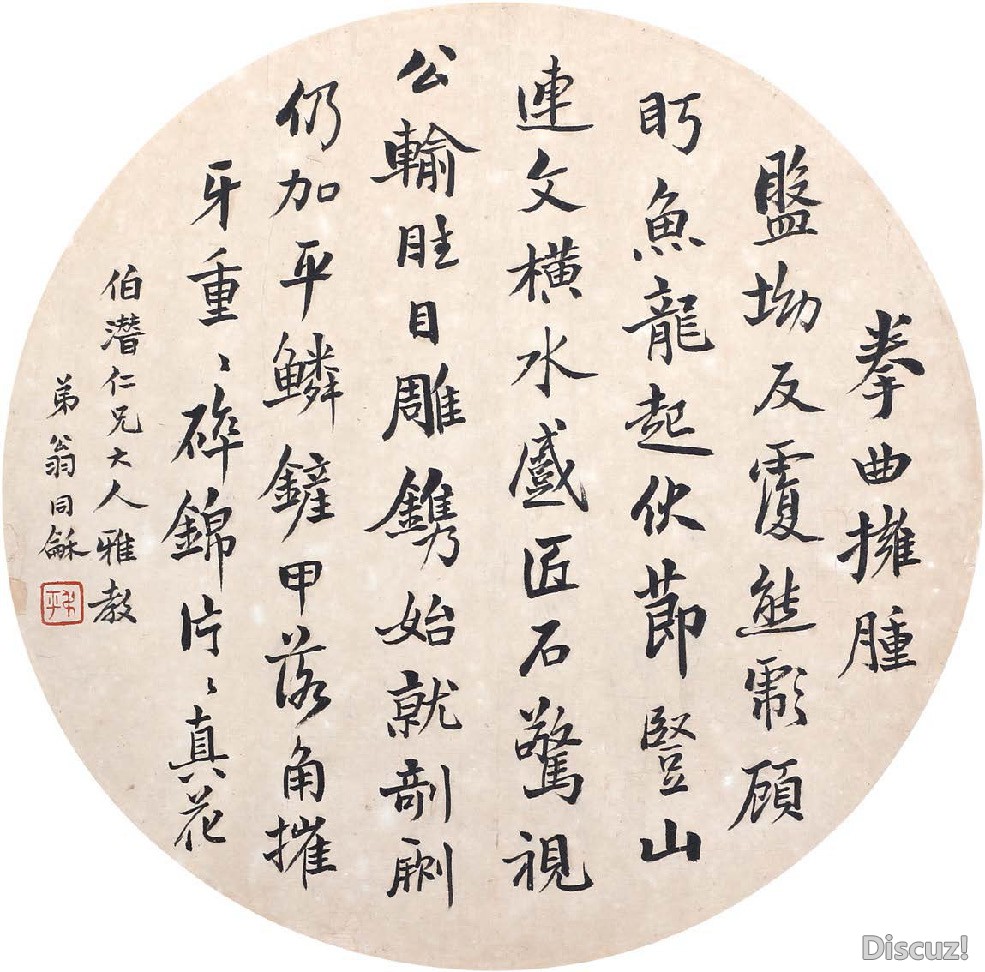 拳曲擁腫
盤坳反覆熊彪顧
眄魚龍起伏節豎山
連文橫水蹙匠石驚視
公輸眩目雕鐫始就剞劂
仍加平鱗鏟甲落角摧
牙重〻碎錦片〻真花
伯潛仁兄大人雅教
弟翁同龢
叔平
Discuz!